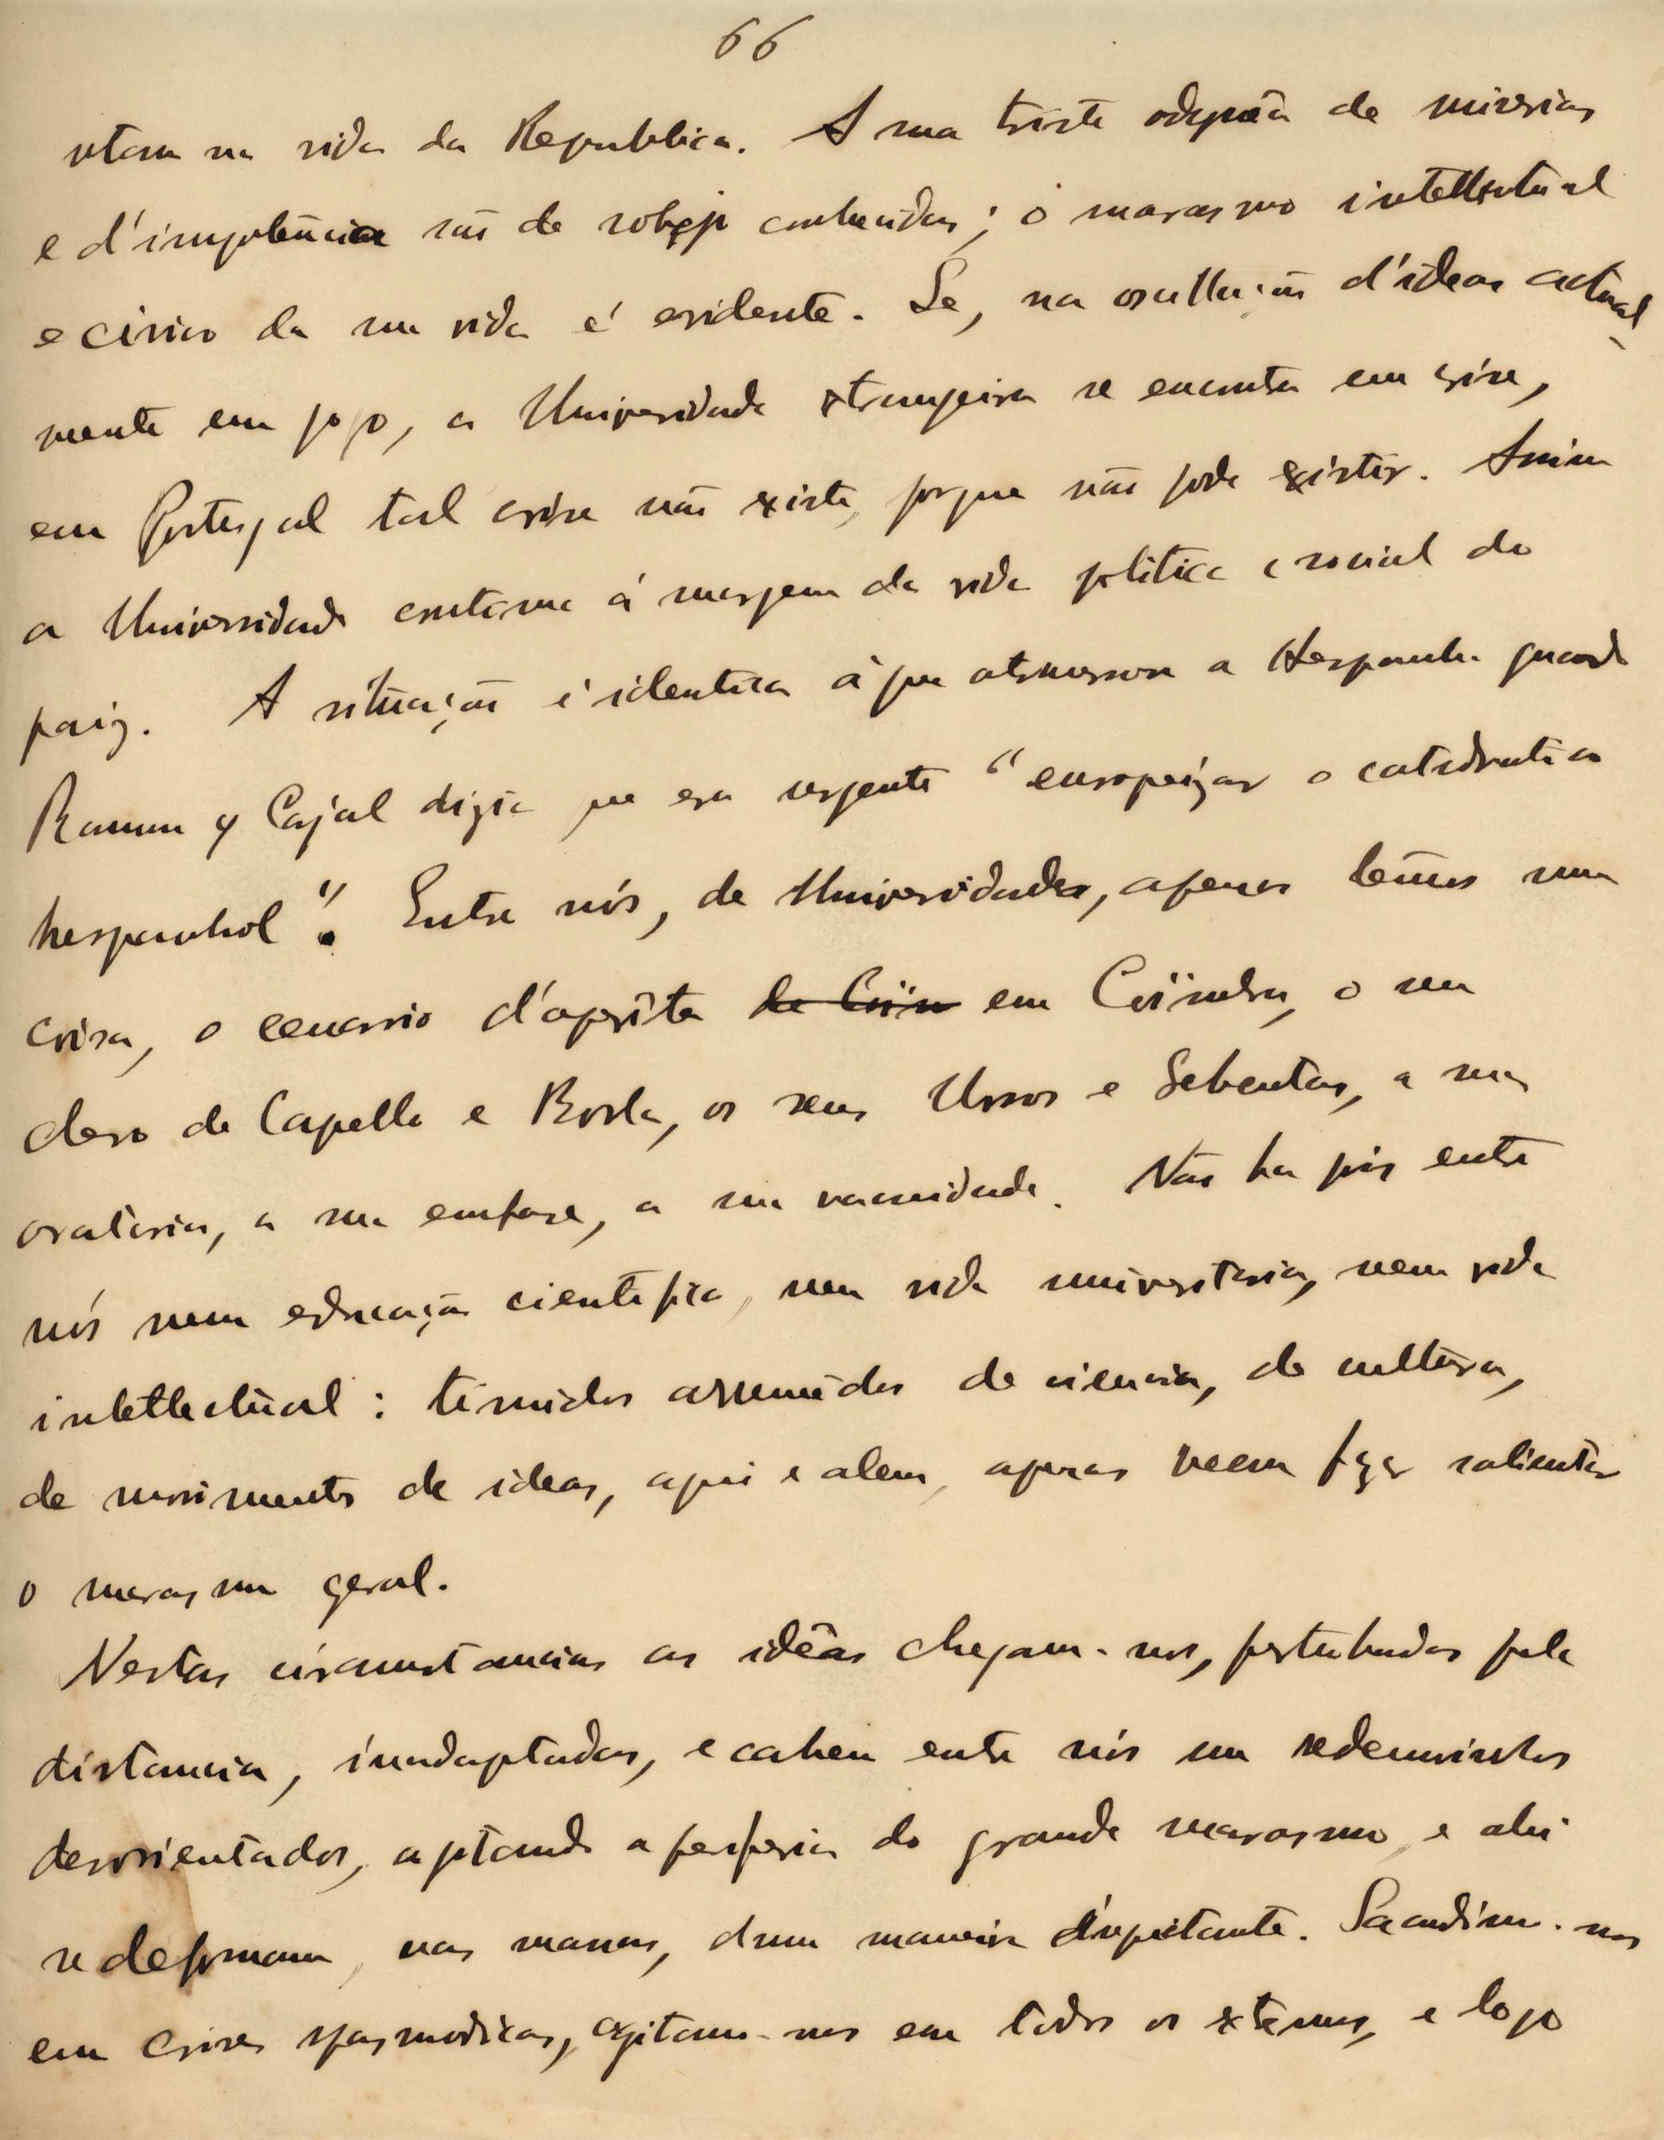 66
na vida da Republica. A sua triste odyssêa de miserias
e d'impotência são de sobejo conhecidas; o marasmo intellectual
e civico da sua vida é evidente. Se, na oscillação d'ideas actual-
mente em jogo, a Universidade extrangeira se encontra em crise,
em Portugal tal crise não existe, porque não pode existir. Assim
a Universidade continua á margem da vida politica e social do
paiz. A situação é identica á que atravessou a Hespanha quando
Ramon y Cajal dizia que era urgente "europeizar o catedratico
hespanhol". Entre nós, de Universidades, apenas temos uma
coisa, o cenario d'opereta de Coïm em Coïmbra, o seu
clero de Capello e Borla, os seus Ursos e Sebentas, a sua
oratoria, a sua emfase, a sua vacuidade. Não ha pois entre
nós nem educação cientifica, nem vida universitaria, nem vida
intellectual: timidos arremedos de ciencia, de cultura,
de movimento de ideas, aqui e alem, apenas veem fazer salientar
o marasmo geral.
Nestas circumstancias as idêas chegam-nos, perturbadas pela
distancia, inadaptadas, e cahem entre nós em redemoinhos
desorientados, agitando a periferia do grande marasmo, e ahi
se deformam, nas massas, duma maneira inquietante. Sacudim-nos
em crises espasmodicas, agitam-nos em todos os extremos, e logo